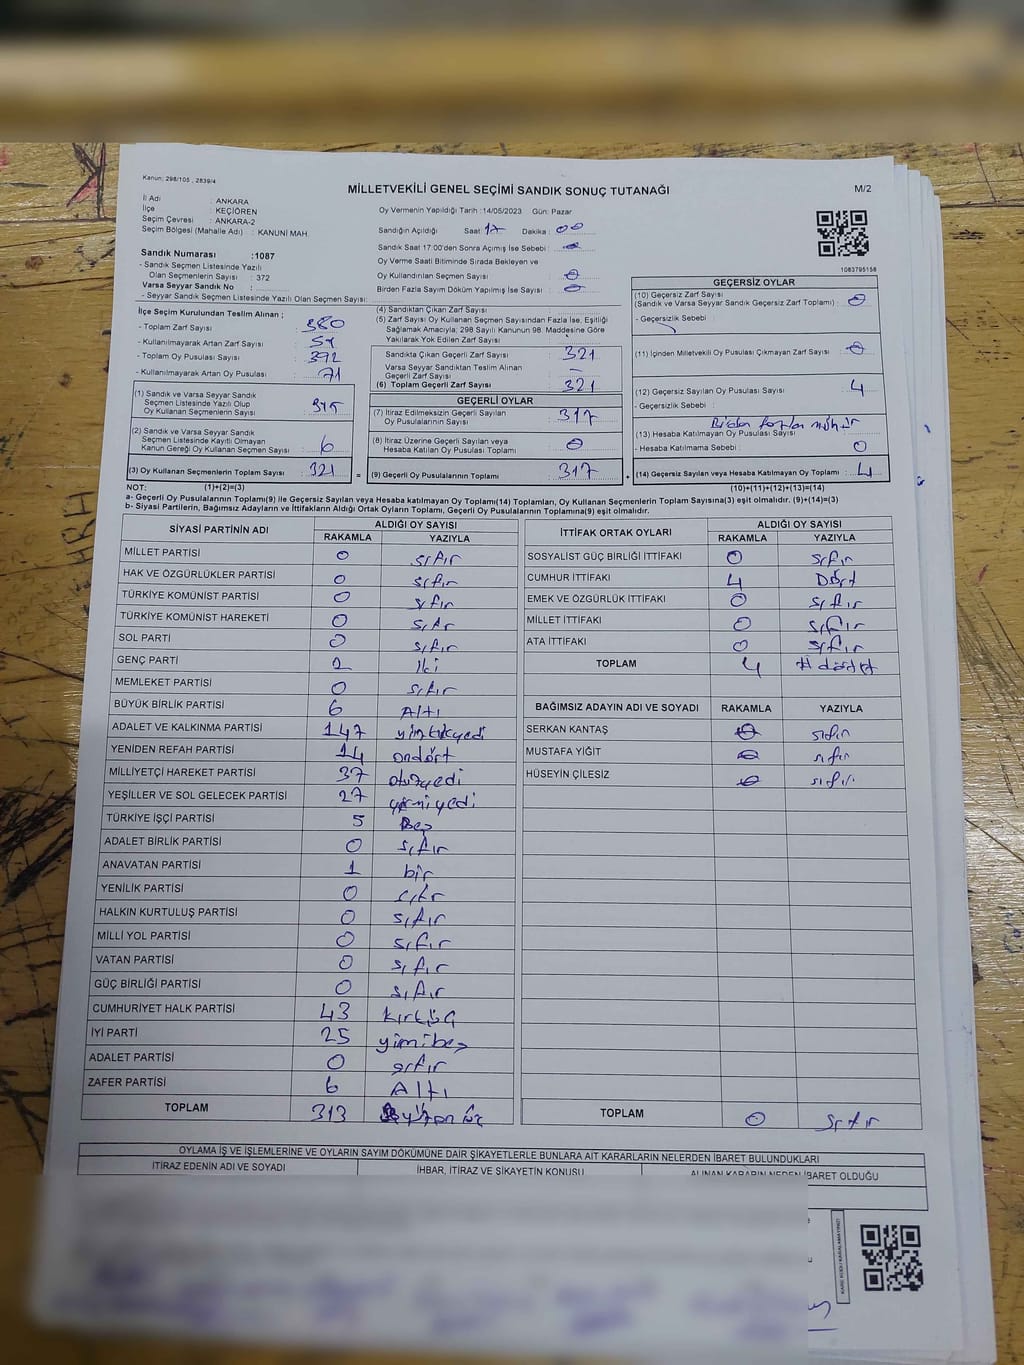 Kanun: 298/105 , 2839/4
MİLLETVEKİLİ GENEL SEÇİMİ SANDIK SONUÇ TUTANAĞI
M/2
İl Adı : ANKARA
İlçe : KEÇİÖREN
Seçim Çevresi : ANKARA-2
Seçim Bölgesi (Mahalle Adı) : KANUNİ MAH.
Sandık Numarası :1087
- Sandık Seçmen Listesinde Yazılı
Olan Seçmenlerin Sayısı : 372
Varsa Seyyar Sandık No :
- Seyyar Sandık Seçmen Listesinde Yazılı Olan Seçmen Sayısı:
Oy Vermenin Yapıldığı Tarih :14/05/2023 Gün: Pazar
Sandığın Açıldığı Saat 17 Dakika : 00
Sandık Saat 17:00'den Sonra Açılmış İse Sebebi :
Oy Verme Saati Bitiminde Sırada Bekleyen ve
Oy Kullandırılan Seçmen Sayısı : 0
Birden Fazla Sayım Döküm Yapılmış İse Sayısı : 0
1083795158
İlçe Seçim Kurulundan Teslim Alınan ;
- Toplam Zarf Sayısı : 380
- Kullanılmayarak Artan Zarf Sayısı :
- Toplam Oy Pusulası Sayısı : 392
- Kullanılmayarak Artan Oy Pusulası : 71
(1) Sandık ve Varsa Seyyar Sandık
Seçmen Listesinde Yazılı Olup
Oy Kullanan Seçmenlerin Sayısı : 315
(2) Sandık ve Varsa Seyyar Sandık
Seçmen Listesinde Kayıtlı Olmayan
Kanun Gereği Oy Kullanan Seçmen Sayısı : 6
(3) Oy Kullanan Seçmenlerin Toplam Sayısı : 321
(4) Sandıktan Çıkan Zarf Sayısı :
(5) Zarf Sayısı Oy Kullanan Seçmen Sayısından Fazla İse, Eşitliği
Sağlamak Amacıyla; 298 Sayılı Kanunun 98. Maddesine Göre
Yakılarak Yok Edilen Zarf Sayısı :
Sandıkta Çıkan Geçerli Zarf Sayısı : 321
Varsa Seyyar Sandıktan Teslim Alınan
Geçerli Zarf Sayısı : –
(6) Toplam Geçerli Zarf Sayısı : 321
GEÇERLİ OYLAR
(7) İtiraz Edilmeksizin Geçerli Sayılan
Oy Pusulalarının Sayısı : 317
(8) İtiraz Üzerine Geçerli Sayılan veya
Hesaba Katılan Oy Pusulası Sayısı : 0
= (9) Geçerli Oy Pusulalarının Toplamı : 317
GEÇERSİZ OYLAR
(10) Geçersiz Zarf Sayısı
(Sandık ve Varsa Seyyar Sandık Geçersiz Zarf Toplamı) : 0
- Geçersizlik Sebebi :
(11) İçinden Milletvekili Oy Pusulası Çıkmayan Zarf Sayısı : 0
(12) Geçersiz Sayılan Oy Pusulası Sayısı : 4
- Geçersizlik Sebebi :
Birden fazla mühür
(13) Hesaba Katılmayan Oy Pusulası Sayısı
- Hesaba Katılmama Sebebi : 0
+ (14) Geçersiz Sayılan veya Hesaba Katılmayan Oy Toplamı : 4
NOT: (1)+(2)=(3) (10)+(11)+(12)+(13)=(14)
a- Geçerli Oy Pusulalarının Toplamı(9) ile Geçersiz Sayılan veya Hesaba katılmayan Oy Toplamı(14) Toplamları, Oy Kullanan Seçmenlerin Toplam Sayısına(3) eşit olmalıdır. (9)+(14)=(3)
b- Siyasi Partilerin, Bağımsız Adayların ve İttifakların Aldığı Ortak Oyların Toplamı, Geçerli Oy Pusulalarının Toplamına(9) eşit olmalıdır.
SİYASİ PARTİNİN ADI ALDIĞI OY SAYISI
RAKAMLA YAZIYLA
MİLLET PARTİSİ 0 sıfır
HAK VE ÖZGÜRLÜKLER PARTİSİ 0 sıfır
TÜRKİYE KOMÜNİST PARTİSİ 0 sıfır
TÜRKİYE KOMÜNİST HAREKETİ 0 sıfır
SOL PARTİ 0 sıfır
GENÇ PARTİ 2 iki
MEMLEKET PARTİSİ 0 sıfır
BÜYÜK BİRLİK PARTİSİ 6 Altı
ADALET VE KALKINMA PARTİSİ 147
YENİDEN REFAH PARTİSİ 14 ondört
MİLLİYETÇİ HAREKET PARTİSİ 37 otuzyedi
YEŞİLLER VE SOL GELECEK PARTİSİ 27 yirmiyedi
TÜRKİYE İŞÇİ PARTİSİ 5 Beş
ADALET BİRLİK PARTİSİ 0 sıfır
ANAVATAN PARTİSİ 1 bir
YENİLİK PARTİSİ 0 sıfır
HALKIN KURTULUŞ PARTİSİ 0 sıfır
MİLLİ YOL PARTİSİ 0 sıfır
VATAN PARTİSİ 0 sıfır
GÜÇ BİRLİĞİ PARTİSİ 0 sıfır
CUMHURİYET HALK PARTİSİ 43 kırküç
İYİ PARTİ 25 yimibeş
ADALET PARTİSİ 0 sıfır
ZAFER PARTİSİ 6 Altı
TOPLAM 313
İTTİFAK ORTAK OYLARI ALDIĞI OY SAYISI
RAKAMLA YAZIYLA
SOSYALİST GÜÇ BİRLİĞİ İTTİFAKI 0 sıfır
CUMHUR İTTİFAKI 4 Dört
EMEK VE ÖZGÜRLÜK İTTİFAKI 0 sıfır
MİLLET İTTİFAKI 0 sıfır
ATA İTTİFAKI 0 sıfır
TOPLAM 4 dört
BAĞIMSIZ ADAYIN ADI VE SOYADI RAKAMLA YAZIYLA
SERKAN KANTAŞ 0 sıfır
MUSTAFA YİĞİT 0 sıfır
HÜSEYİN ÇİLESİZ 0 sıfır
TOPLAM 0 sıfır
OYLAMA İŞ VE İŞLEMLERİNE VE OYLARIN SAYIM DÖKÜMÜNE DAİR ŞİKAYETLERLE BUNLARA AİT KARARLARIN NELERDEN İBARET BULUNDUKLARI
İTİRAZ EDENİN ADI VE SOYADI İHBAR, İTİRAZ VE ŞİKAYETİN KONUSU ALINAN KARARIN NEDEN İBARET OLDUĞU